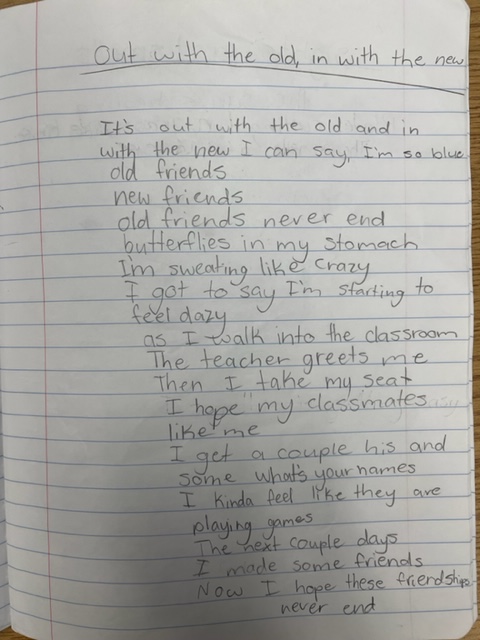 Out with the old, in with the new
It's out with the old and in
with the new I can say, I'm so blue
old friends
new friends
old friends never end
butterflies in my stomach
I'm sweating like crazy
I got to say I'm starting to
feel dazy
as I walk into the classroom
The teacher greets me
Then I take my seat
I hope my classmates
like me
I get a couple his and
some what's your names
I kinda feel like they are
playing games
The next couple days
I made some friends
Now I hope these friendships
never end